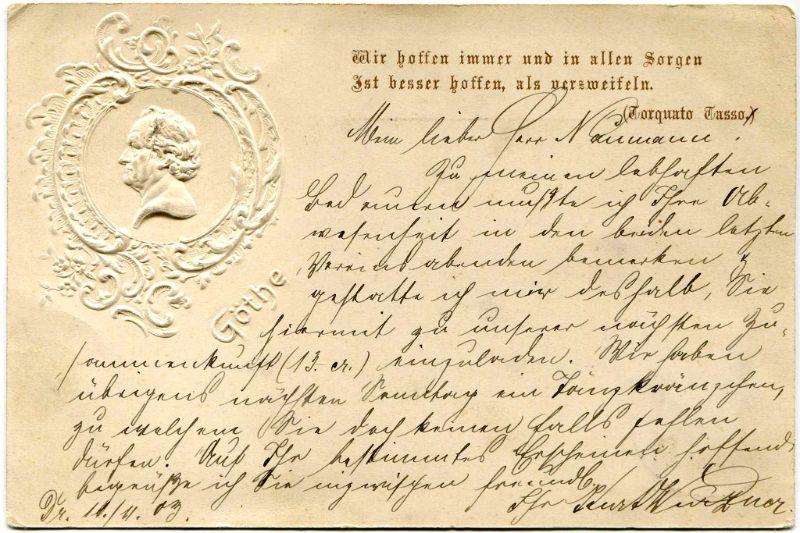 Wir hoffen immer und in allen Sorgen
Ist besser hoffen, als verzweifeln.
(Torquato Tasso.)
Göthe
Mein lieber Herr Naumann.
Zu meinen lebhaften
Bedauern mußte ich Ihre Ab-
wesenheit in den beiden letzten
Vereinsabenden bemerken &
gestatte ich mir deshalb, Sie
hiermit zu unserer nächsten Zu-
sammenkunft (13. cr.) einzuladen. Wir haben
übrigens nächsten Sonntag ein Tanzkränzchen,
zu welchem Sie doch keinen falls fehlen
dürfen. Auf Ihr bestimmtes Erscheinen hoffend
begrüße ich Sie inzwischen freundl.
Ihr Kurt
Dr. 11/